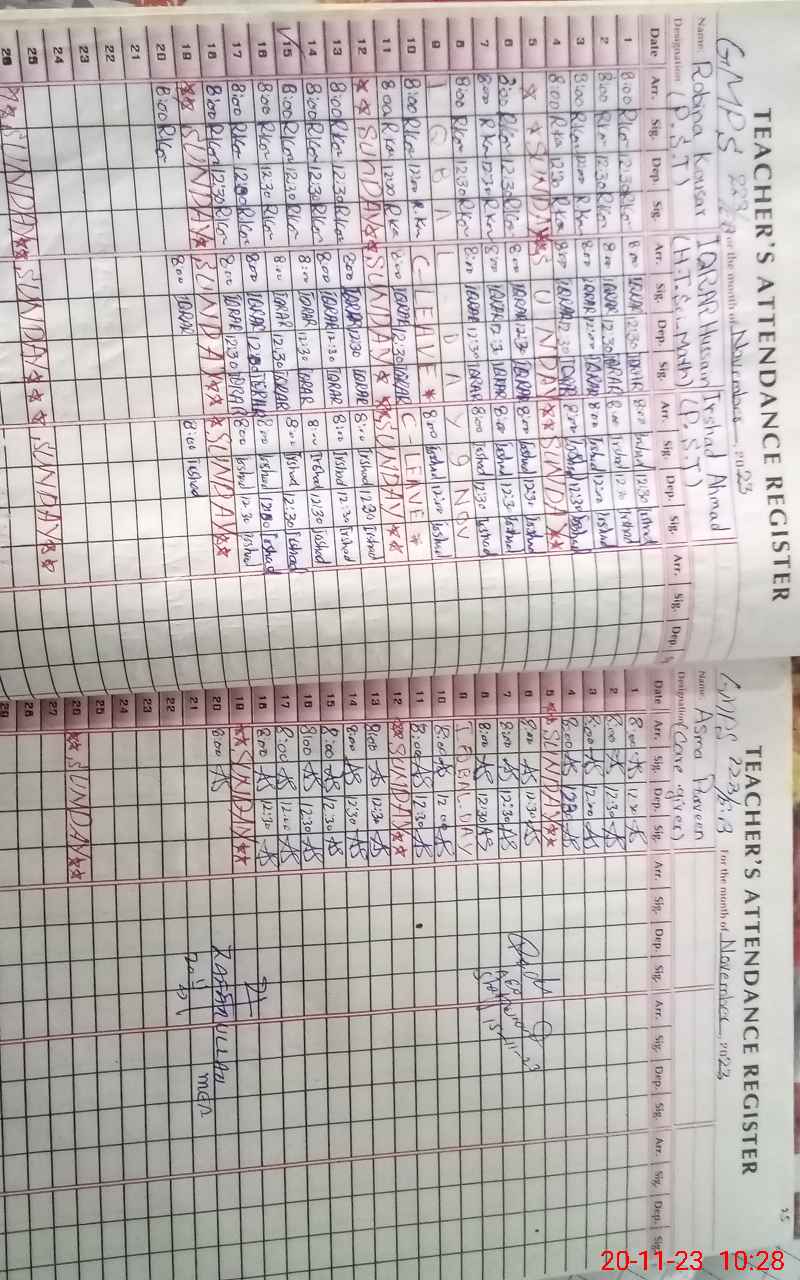 TEACHER'S ATTENDANCE REGISTER
GMPS 223/EB For the month of November, 2023
Name: Robina Kousar IQRAR Hussain Irshad Ahmad
Designation (P.S.T) (H.T. Sci-Math) (P.S.T)
Date Arr. Sig. Dep. Sig. Arr. Sig. Dep. Sig. Arr. Sig. Dep. Sig. Arr. Sig. Dep.
1 8:00 RKor 12:30 RKor 8:00 IQRAR 12:30 IQRAR 8:00 Irshad 12:30 Irshad
2 8:00 RKor 12:30 RKor 8:00 IQRAR 12:30 IQRAR 8:00 Irshad 12:30 Irshad
3 8:00 RKor 12:00 RKor 8:00 IQRAR 12:00 IQRAR 8:00 Irshad 12:00 Irshad
4 8:00 RKor 12:30 RKor 8:00 IQRAR 12:30 IQRAR 8:00 Irshad 12:30 Irshad
5 * * SUNDAY * * SUNDAY * * SUNDAY * *
6 8:00 RKor 12:30 RKor 8:00 IQRAR 12:30 IQRAR 8:00 Irshad 12:30 Irshad
7 8:00 RKor 12:30 RKor 8:00 IQRAR 12:30 IQRAR 8:00 Irshad 12:30 Irshad
8 8:00 RKor 12:30 RKor 8:00 IQRAR 12:30 IQRAR 8:00 Irshad 12:30 Irshad
9 IQBAL DAY 9 NOV
10 8:00 RKor 12:00 RKor C-LEAVE * 8:00 Irshad 12:00 Irshad
11 8:00 RKor 12:00 RKor 8:00 IQRAR 12:30 IQRAR C-LEAVE *
12 * * SUNDAY * * SUNDAY * * SUNDAY * *
13 8:00 RKor 12:30 RKor 8:00 IQRAR 12:30 IQRAR 8:00 Irshad 12:30 Irshad
14 8:00 RKor 12:30 RKor 8:00 IQRAR 12:30 IQRAR 8:00 Irshad 12:30 Irshad
15 8:00 RKor 12:30 RKor 8:00 IQRAR 12:30 IQRAR 8:00 Irshad 12:30 Irshad
16 8:00 RKor 12:30 RKor 8:00 IQRAR 12:30 IQRAR 8:00 Irshad 12:30 Irshad
17 8:00 RKor 12:00 RKor 8:00 IQRAR 12:00 IQRAR 8:00 Irshad 12:00 Irshad
18 8:00 RKor 12:30 RKor 8:00 IQRAR 12:30 IQRAR 8:00 Irshad 12:30 Irshad
19 * * SUNDAY * * SUNDAY * * SUNDAY * *
20 8:00 RKor 8:00 IQRAR 8:00 Irshad
21
22
23
24
25
26 * * SUNDAY * * SUNDAY * * SUNDAY * *
25
TEACHER'S ATTENDANCE REGISTER
GMPS 223/E.B For the month of November, 2023
Name: Asma Parveen
Designation (Care giver)
Date Arr. Sig. Dep. Sig. Arr. Sig. Dep. Sig. Arr. Sig. Dep. Sig. Arr. Sig. Dep. Sig.
1 8:00 AS 12:30 AS
2 8:00 AS 12:30 AS
3 8:00 AS 12:00 AS
4 8:00 AS 12:30 AS
5 * * SUNDAY * *
6 8:00 AS 12:30 AS
7 8:00 AS 12:30 AS
8 8:00 AS 12:30 AS
9 IQBAL DAY
10 8:00 AS 12:00 AS
11 8:00 AS 12:30 AS
12 * * SUNDAY * *
13 8:00 AS 12:30 AS
14 8:00 AS 12:30 AS
15 8:00 AS 12:30 AS
16 8:00 AS 12:30 AS
17 8:00 AS 12:00 AS
18 8:00 AS 12:30 AS
19 * * SUNDAY * *
20 8:00 AS
21
22
23
24
25
26 * * SUNDAY * *
27
28
29
ZAFAR ULLAH
MEA
20-11-23 10:28